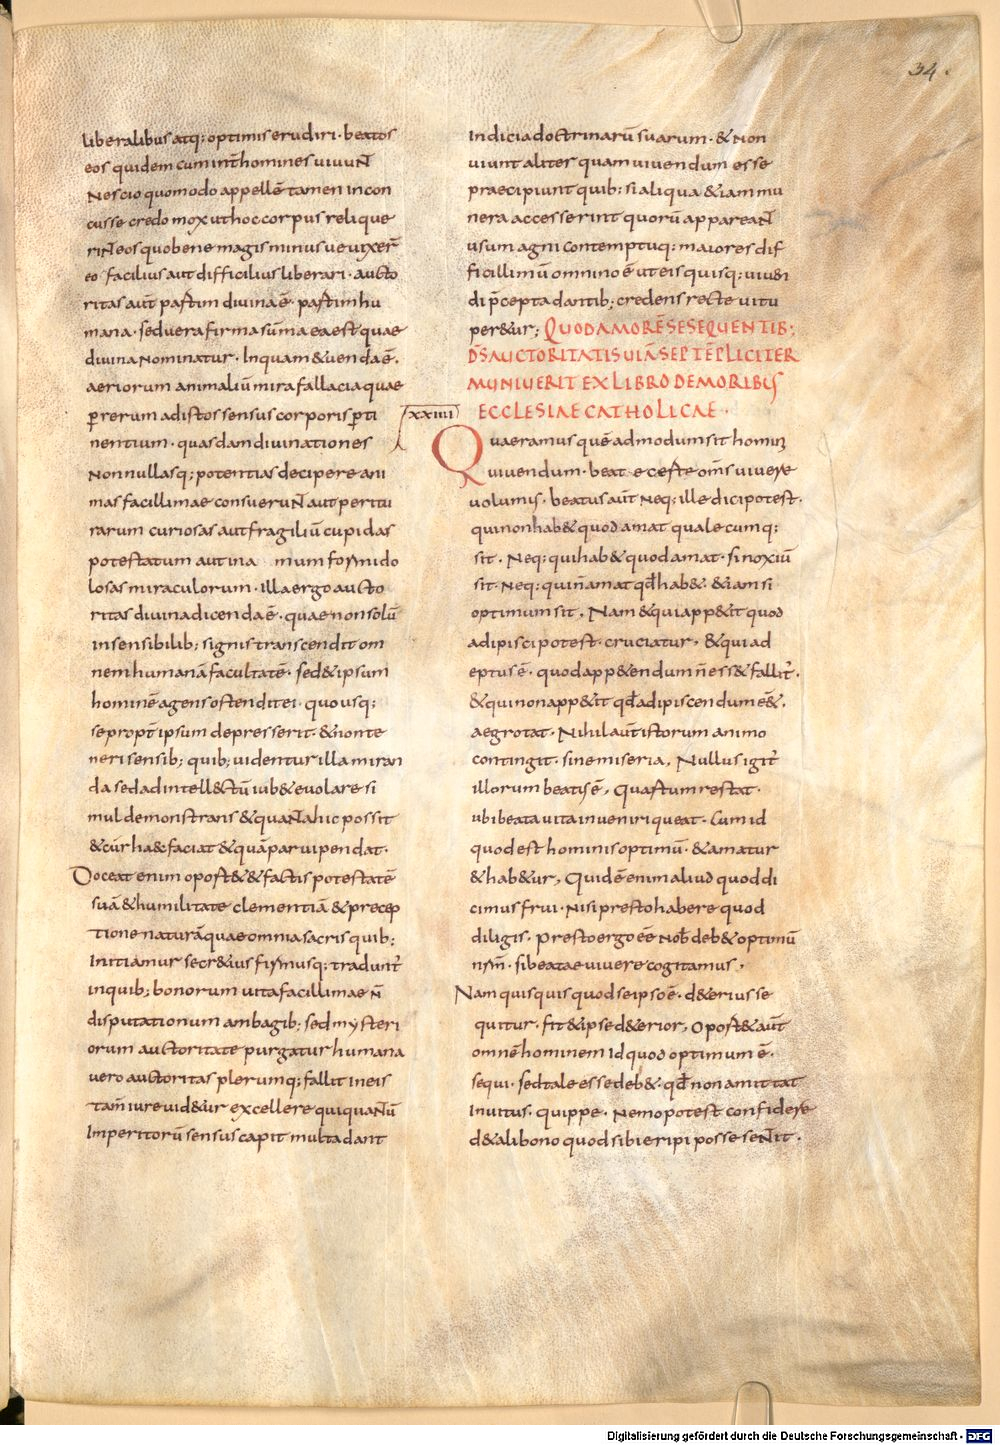 34.
liberalibus atq; optimis erudiri · beatos
eos quidem cum int̄ homines uiuuNT
Nescio quomodo appellē tamen incon
cusse credo mox ut hoc corpus relique
riNT eos quo bene magis minusue uixer̄
eo facilius aut difficilius liberari · aucto
ritas aut̄ partim diuina ē · partim hu
mana · sed uera firma sūma ea est quae
diuina Nominatur · In qua m&uenda ē ·
aeriorum animaliū mira fallacia quae
p̱ rerum ad istos sensus corporis p̱ti
nentium · quasdam diuinationes
Non nullasq; potentias decipere ani
mas facillimae consueruNT aut peritu
rarum curiosas aut fragiliū cupidas
potestatum aut ina mum formido
losas miraculorum · Illa ergo aucto
ritas diuina dicenda ē · quae non solū
in sensibilib; signis transcendit om
nem humanā facultatē · sed & ipsum
hominē agens ostendit ei · quo usq;
se propt̄ ipsum depresserit · & non te
neri sensib; quib; uidentur illa miran
da sed ad intell&ctū iub& euolare si
mul demonstrans & quaNTa hic possit
& cur haec faciat & quā parui pendat ·
Doceat enim oport& & factis potestatē
suā & humilitate clementiā & precep
tione naturā quae omnia sacris quib;
Initiamur secr&ius firmiusq; tradunt̄
in quib; bonorum uita facillimae n̄
disputationum ambagib; sed mysteri
orum auctoritate purgatur humana
uero auctoritas plerumq; fallit in eis
tam̄ iure uid&ur excellere qui quaNTū
Imperitorū sensus capit multa dant
Indicia doctrinarū suarum · & Non
uiuunt aliter quam uiuendum esse
praecipiunt quib; si aliqua &iam mu
nera accesserint quorū appareaNT
usum agni contemptuq; maiores dif
ficillimū omnino ē ut eis quisq; uiuen
di p̄cepta dantib; credens recte uitu
per&ur; QUOD AMORĒ SE SEQUENTIB;
D̄S AUCTORITATIS UIĀ SEPTĒPLICITER
MUNIUERIT EX LIBRO DE MORIBUS
XXIIII ECCLESIAE CATHOLICAE ·
Quaeramus quē admodum sit homini
uiuendum · beate certe om̄s uiuere
uolumus · beatus aut̄ Neq; ille dici potest ·
qui non hab& quod amat qualecumq;
sit · Neq; qui hab& quod amat · si noxiū
sit · Neq; qui n̄ amat qd̄ hab& · &iam si
optimum sit · Nam & qui app&it quod
adipisci potest · cruciatur, & qui ad
eptus ē · quod app&endum n̄ ess& fallit̄ ·
& qui non app&it qd̄ adipiscendum ē& ·
aegrotat · Nihil aut̄ istorum animo
contingit · sine miseria, Nullus igit̄
illorum beatus ē, Quartum restat ·
ubi beata uita inueniri queat · Cum id
quod est hominis optimū · & amatur
& hab&ur, Quid ē enim aliud quod di
cimus frui · Nisi presto habere quod
diligis · presto ergo eē Nob̄ deb& optimū
nr̄m · si beatae uiuere cogitamus,
Nam quisquis quod se ipso ē · d&erius se
quitur · fit & ipse d&erior, Oport& aut̄
omnē hominem Id quod optimum ē ·
sequi · sed tale esse deb& · qd̄ non amittat
Inuitus · quippe · Nemo potest confidere
d& ali bono quod sibi eripi posse seNTit ·
Digitalisierung gefördert durch die Deutsche Forschungsgemeinschaft - DFG